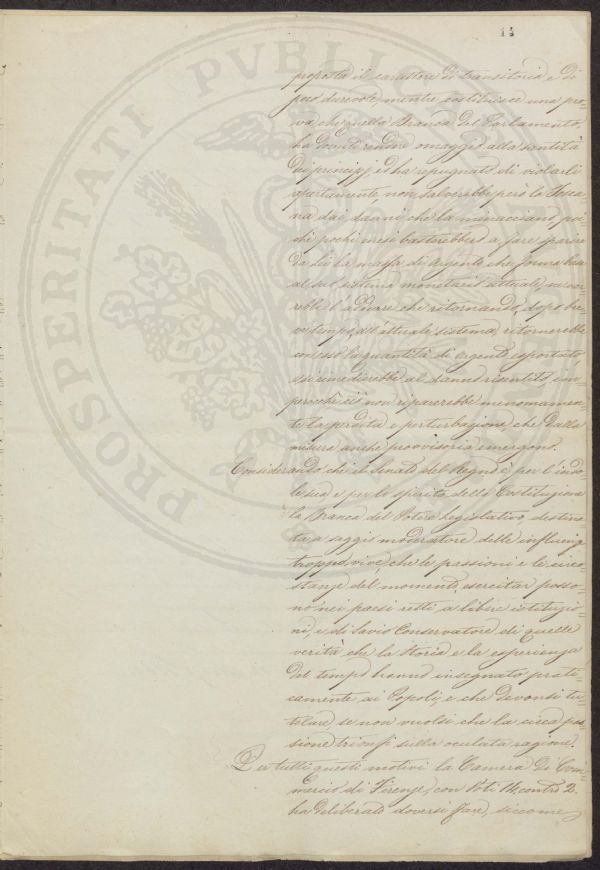 14
proposta il carattere di transitoria e di
poco durevole, mentre costituisce una pro=
va che quella Branca del Parlamento,
ha dovuto rendere omaggio alla santità
dei principj, ed ha repugnato di violarli
apertamente, non salverebbe però la Tosca=
na dai danni che la minacciano, poi
chè pochi mesi basterebbero a fare sparire
da lei la massa di Argento che forma base
al suo sistema monetario attuale, nè var=
rebbe l'addurre che ritornando, dopo bre=
ve tempo, all'attuale sistema, ritornerebbe
con esso la quantità di Argento esportato
e si rimedierebbe al danno risentito, im=
perochè ciò non riparerebbe menomamen=
te la perdita e perturbazione che dalla
misura anche provvisoria emergono.
Considerando che il Senato del Regno è per l'indo=
le sua e per lo spirito della Costituzione
la Branca del Potere Legislativo, destina=
ta a saggio moderatore delle influenze
troppo vive, che le passioni e le circo=
stanze del momento, esercitar posso=
no nei paesi retti a libere istituzio=
ni, e di savio Conservatore di quelle
verità che la Storia e la esperienza
del tempo hanno insegnato prati=
camente ai Popoli, e che devonsi tu=
telare se non vuolsi che la cieca pas=
sione trionfi sulla oculata ragione.
Per tutti questi motivi la Camera di Com=
mercio di Firenze, con Voti 14. contro 2.
ha deliberato doversi fare, siccome
PROSPERITATI PVBLICAE